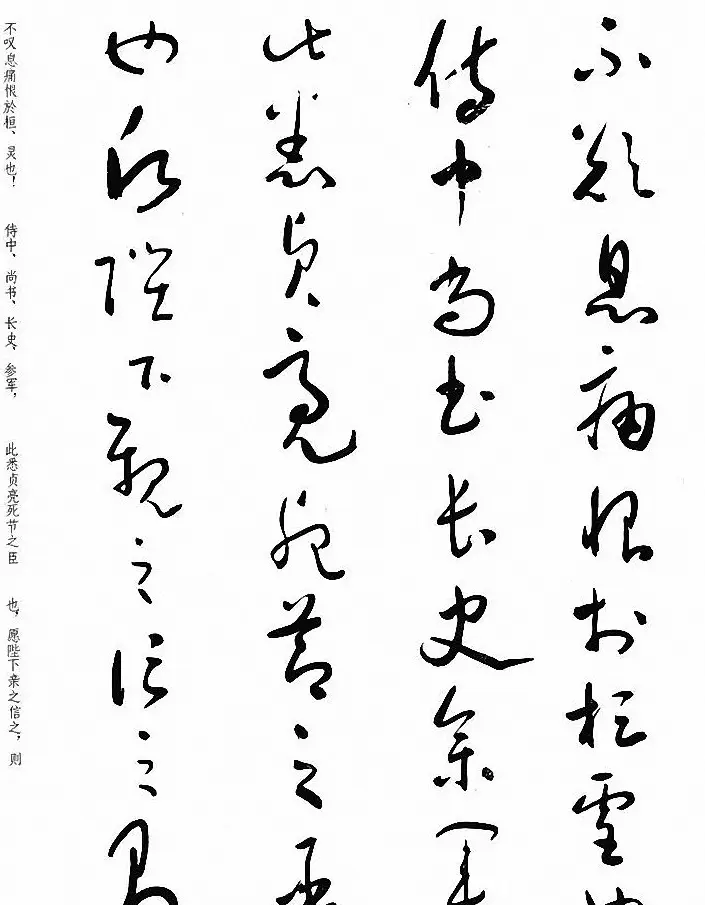 不歎息痛恨於桓靈也
侍中尚書長史參軍
此悉貞亮死節之臣
也願陛下親之信之則
不叹息痛恨於桓、灵也！ 侍中、尚书、长史、参军， 此悉贞亮死节之臣 也，愿陛下亲之信之，则